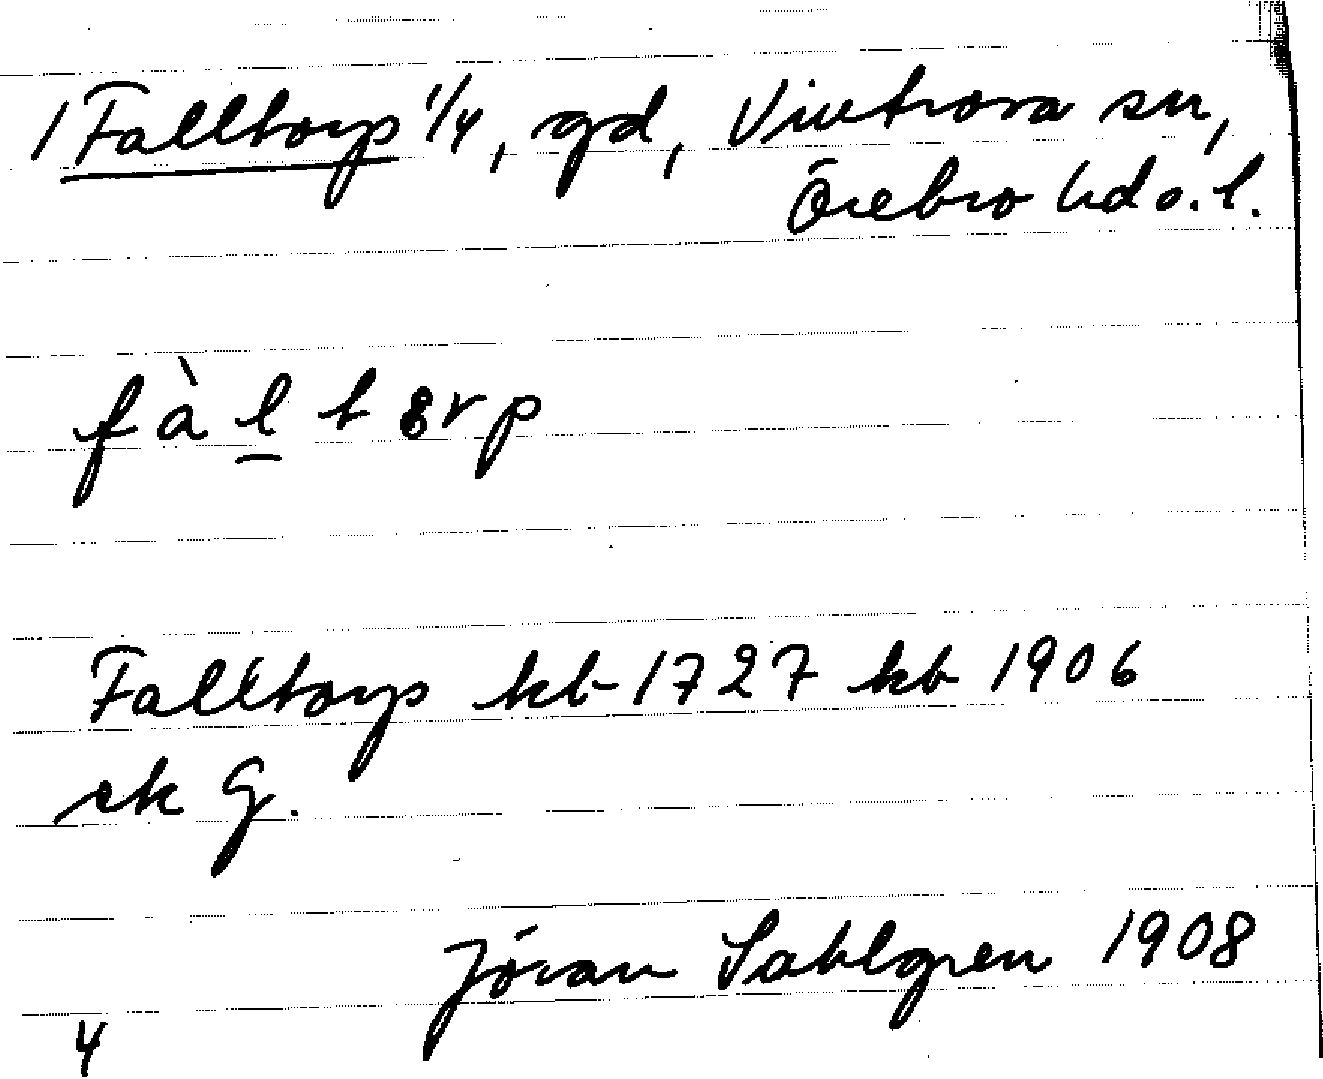 1 Falltorp 1/4, gd, Vintrosa sn,
Örebro hd o. l.
fàltərp
Falltorp kb 1727 kb 1906
ek G.
Jöran Sahlgren 1908
4